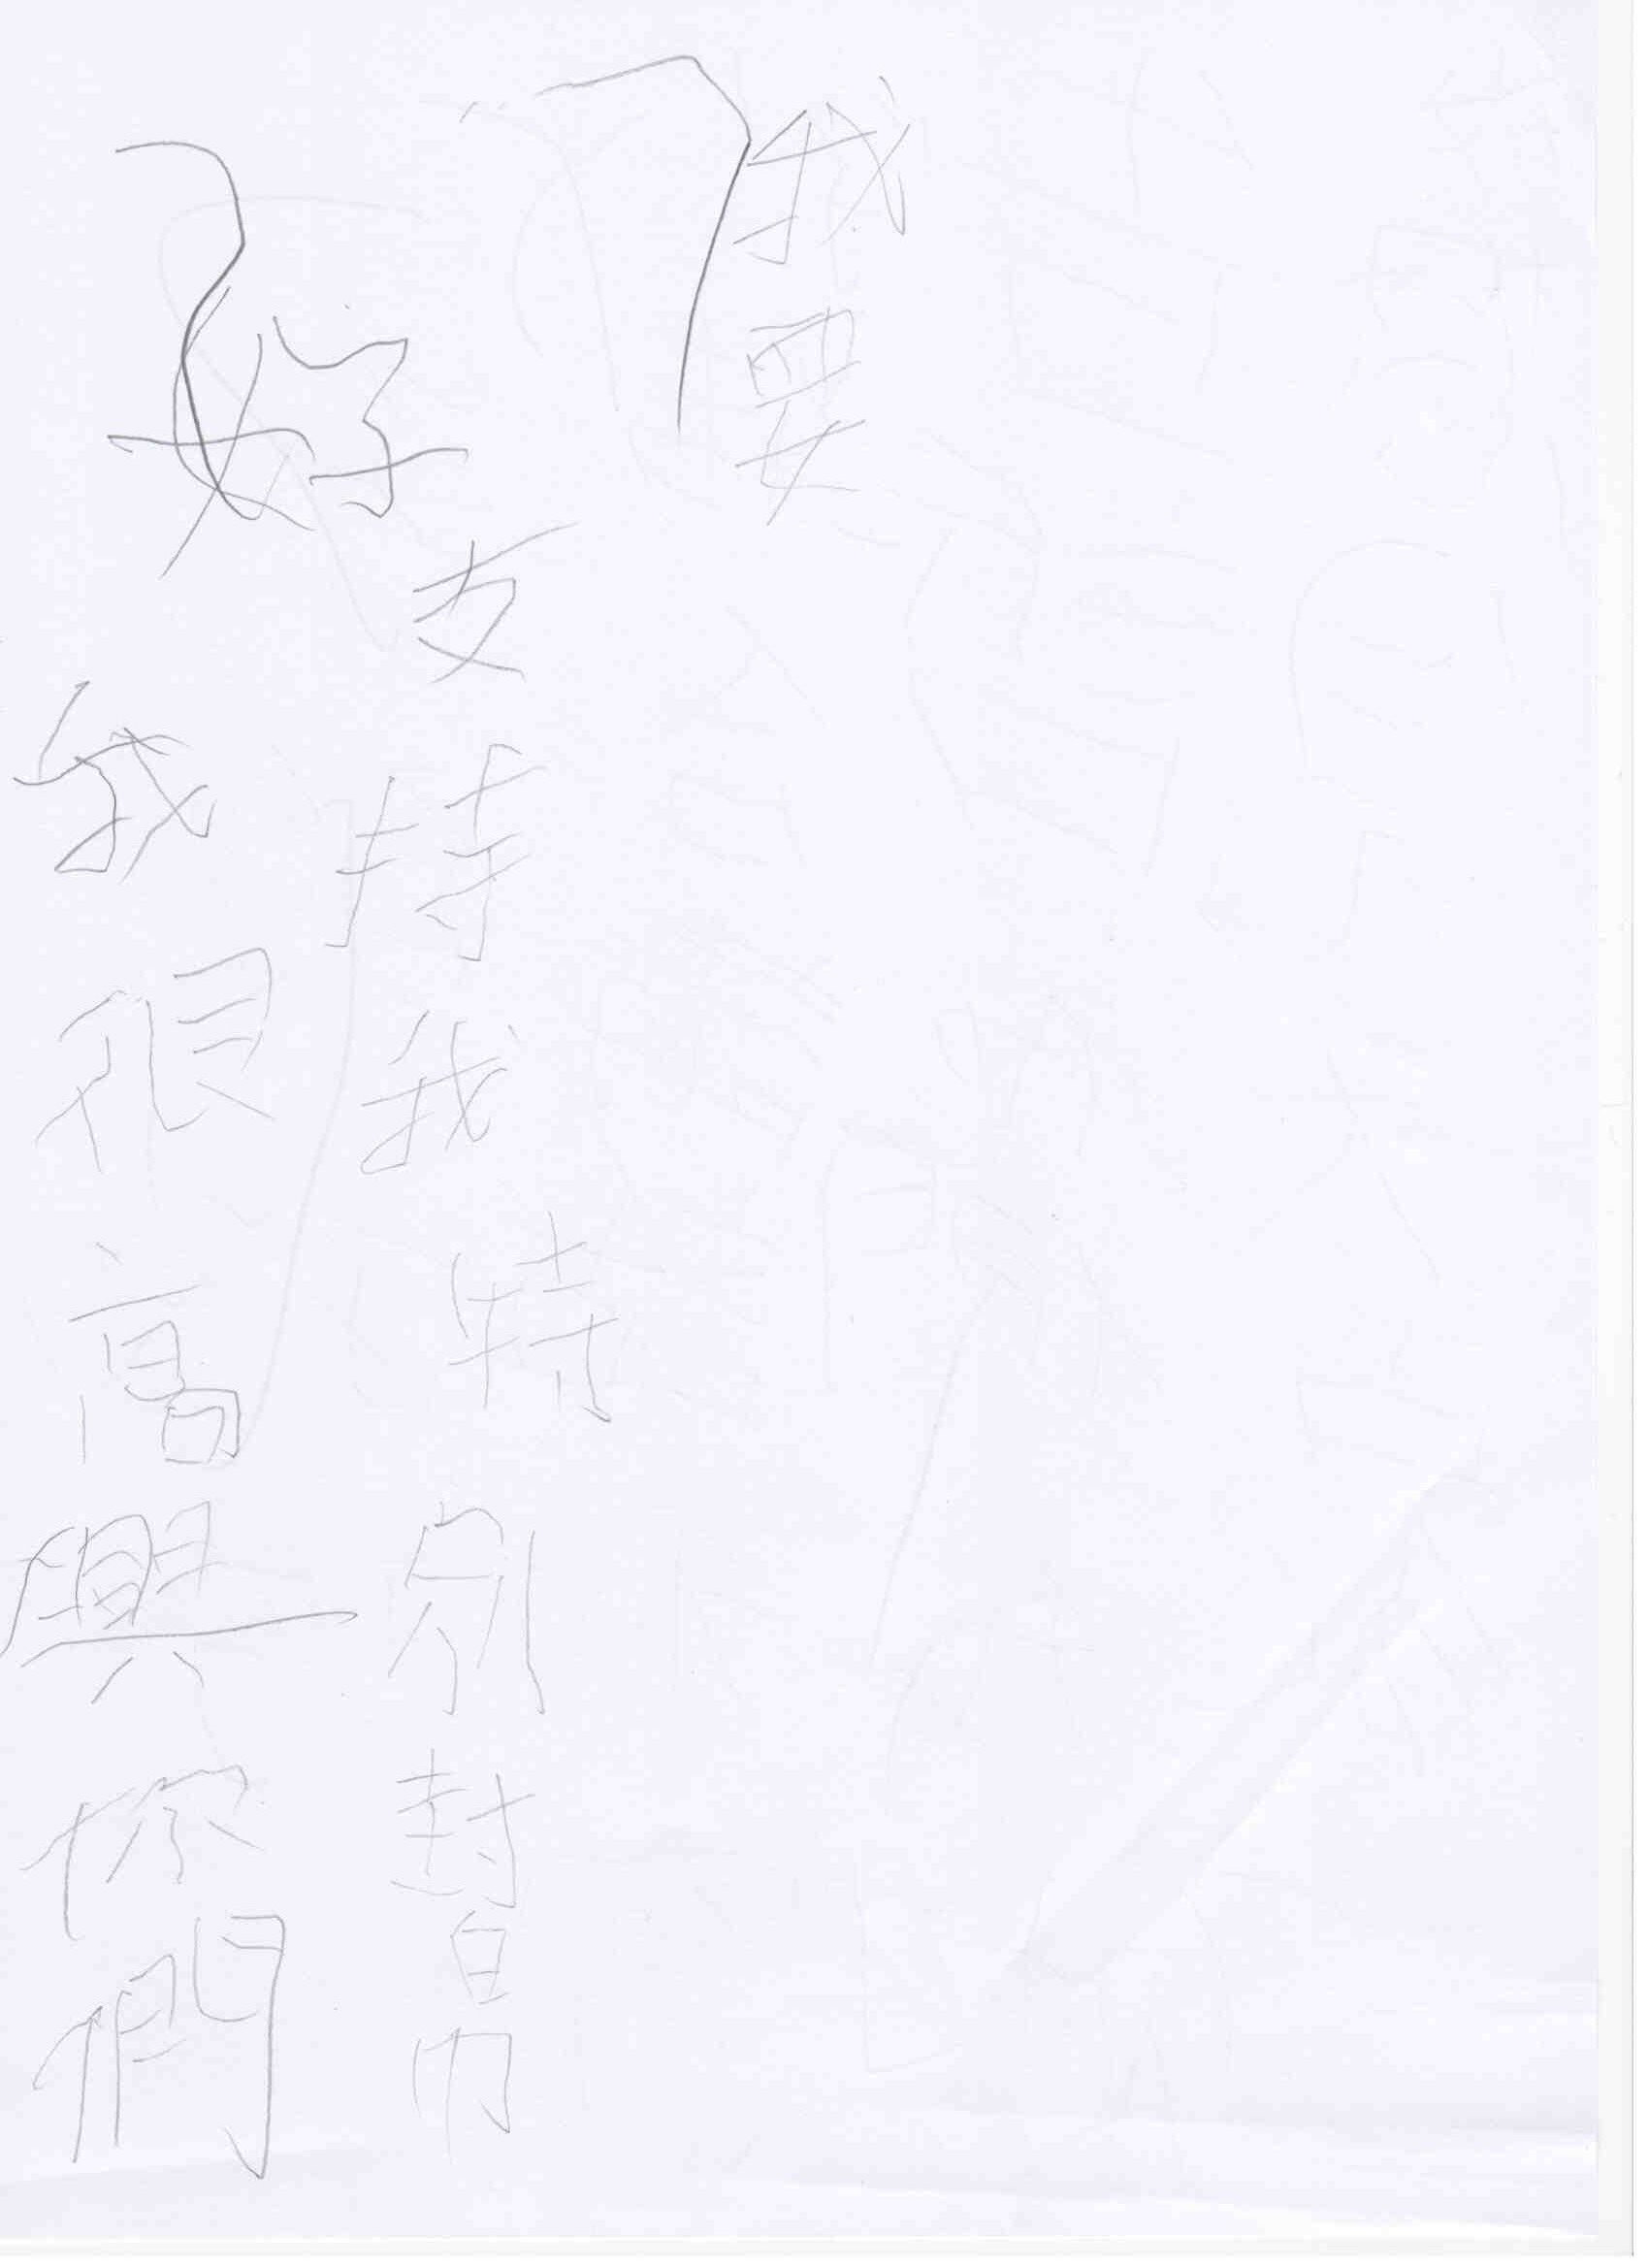 好我很高興你們
支持我特別幫
我要